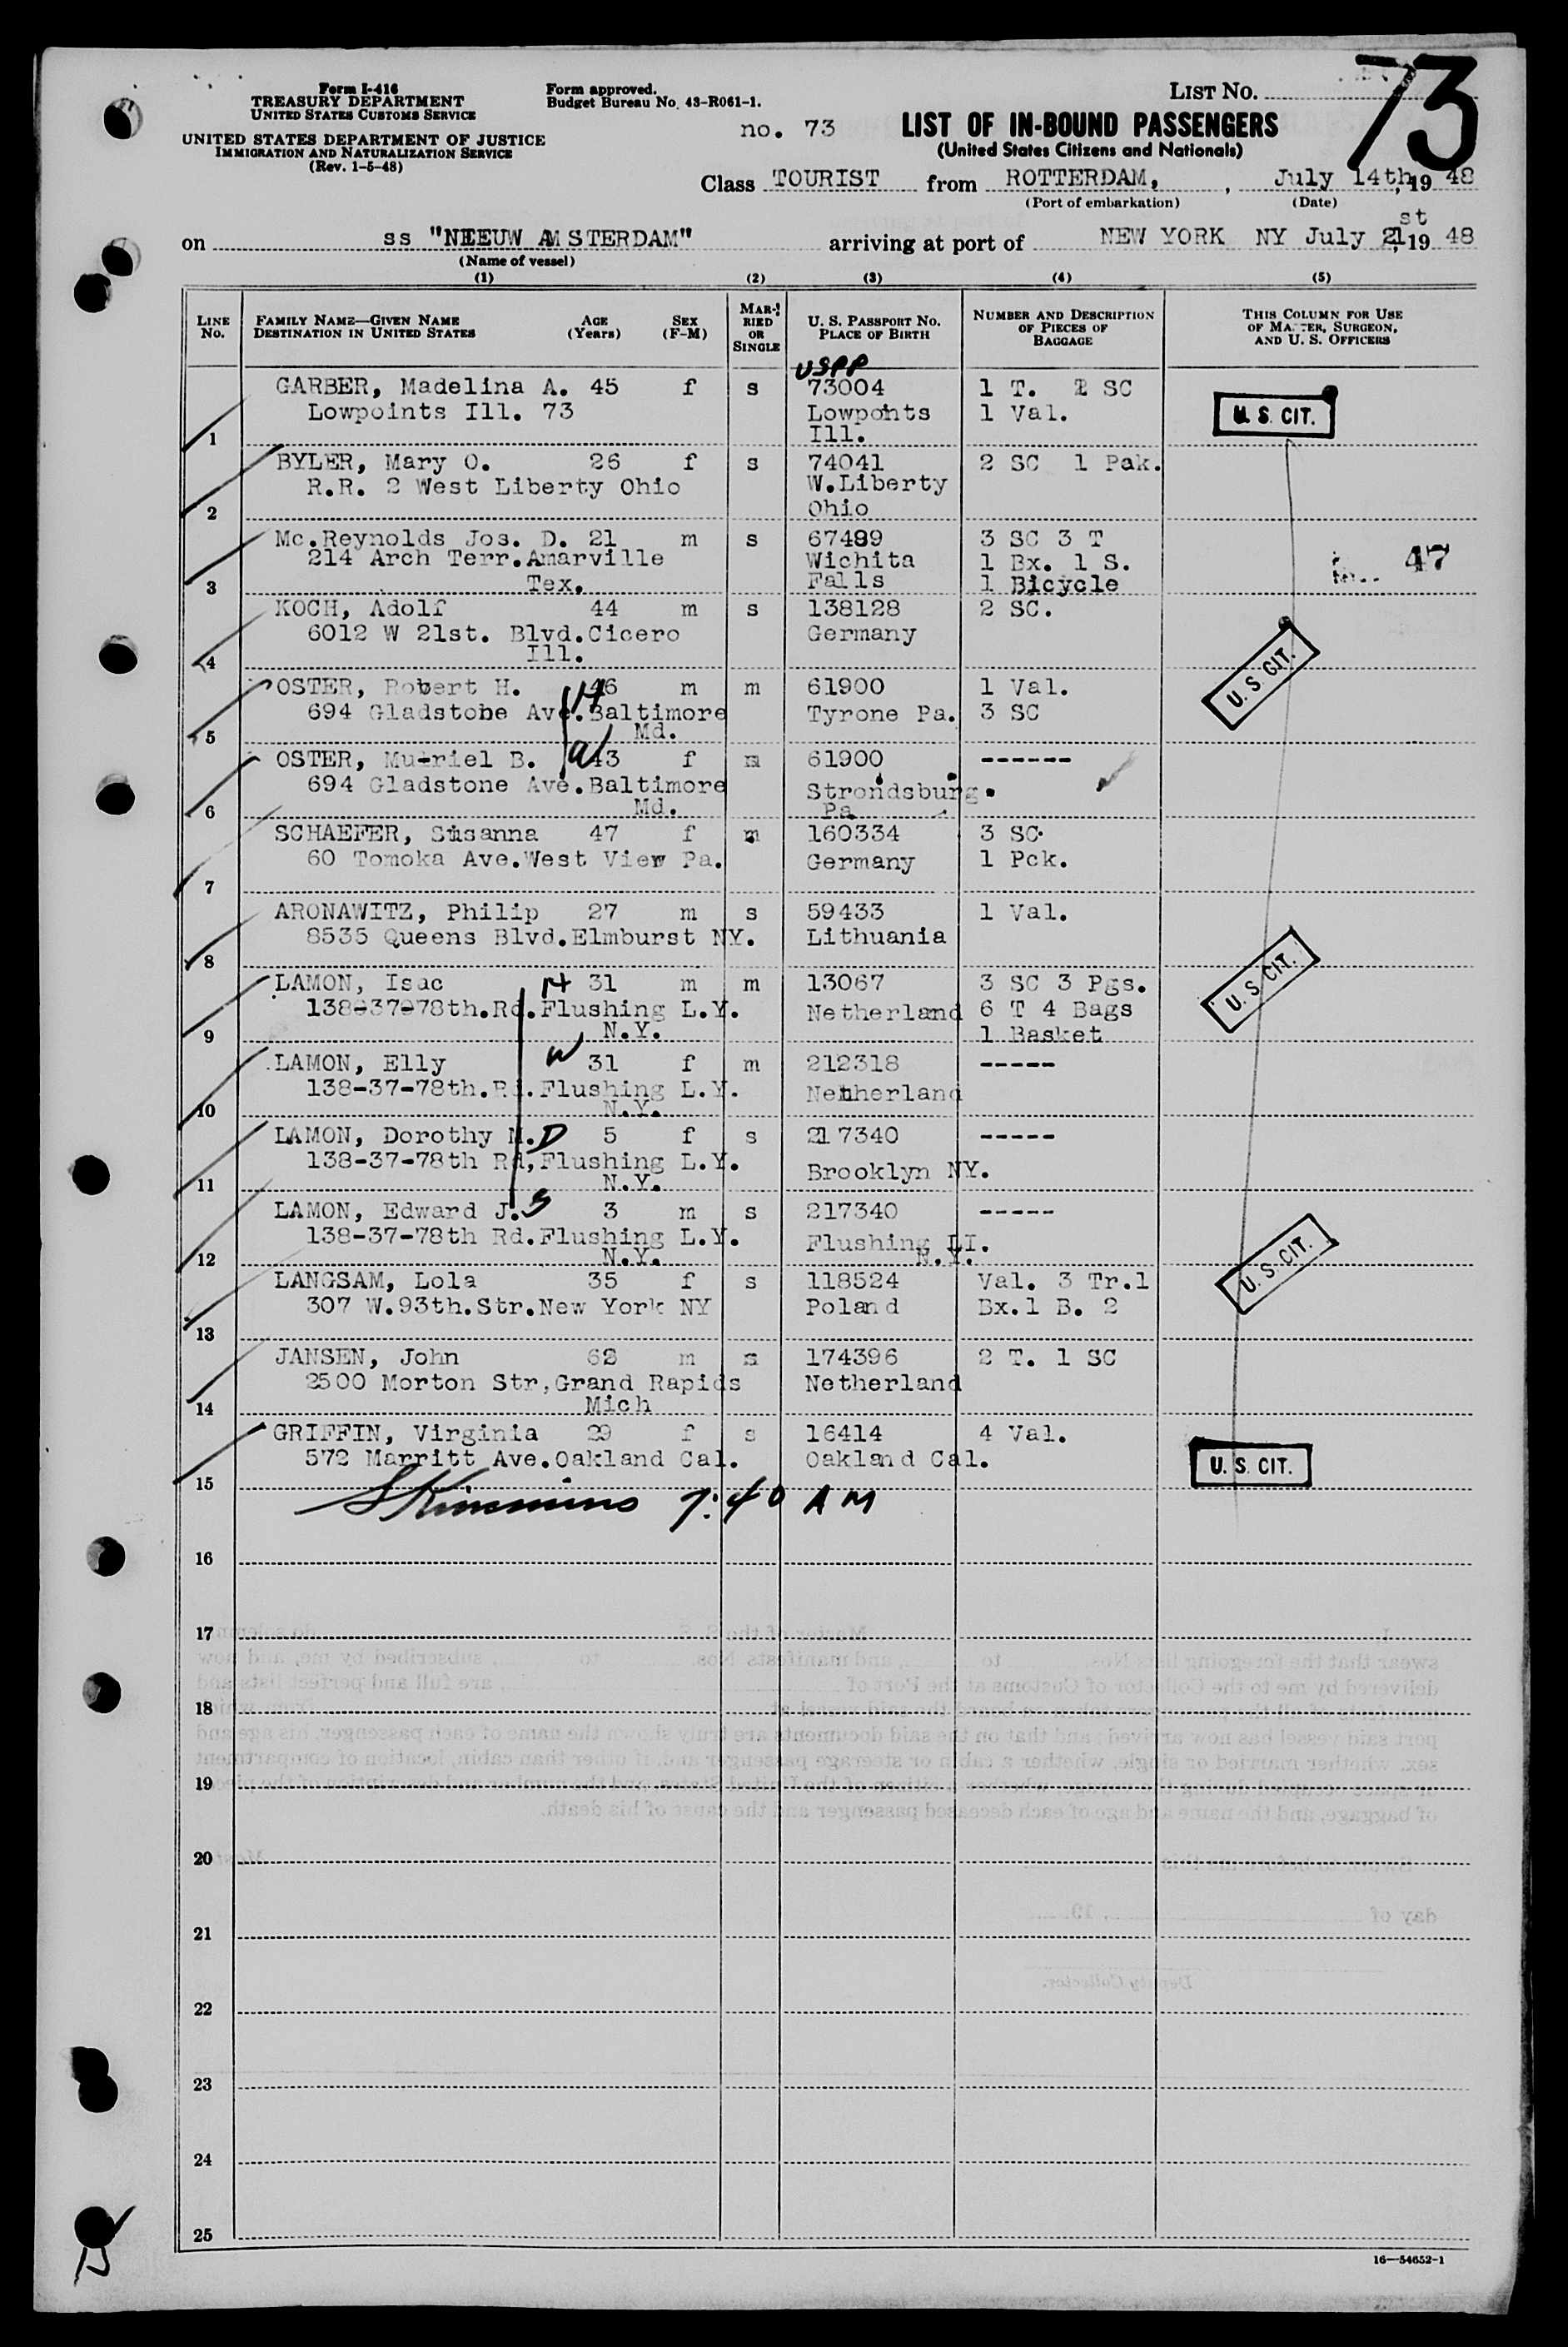 Form I-416
TREASURY DEPARTMENT
UNITED STATES CUSTOMS SERVICE
UNITED STATES DEPARTMENT OF JUSTICE
IMMIGRATION AND NATURALIZATION SERVICE
(Rev. 1-5-48)
Form approved.
Budget Bureau No. 43-R061-1.
LIST NO. 73
no. 73 LIST OF IN-BOUND PASSENGERS
(United States Citizens and Nationals)
Class TOURIST from ROTTERDAM, , July 14th, 19 48
(Port of embarkation) (Date)
on ss "NIEUW AMSTERDAM" arriving at port of NEW YORK NY July 21st, 19 48
(Name of vessel)
(1) (2) (3) (4) (5)
LINE No. FAMILY NAME—GIVEN NAME DESTINATION IN UNITED STATES AGE (Years) SEX (F-M) MARRIED OR SINGLE U. S. PASSPORT NO. PLACE OF BIRTH NUMBER AND DESCRIPTION OF PIECES OF BAGGAGE THIS COLUMN FOR USE OF MASTER, SURGEON, AND U. S. OFFICERS
USPP
GARBER, Madelina A. 45 f s 73004 1 T. 2 SC
Lowpoints Ill. 73 Lowponts 1 Val. U. S. CIT.
1 Ill.
BYLER, Mary O. 26 f s 74041 2 SC 1 Pak.
R.R. 2 West Liberty Ohio W.Liberty
2 Ohio
Mc.Reynolds Jos. D. 21 m s 67489 3 SC 3 T
214 Arch Terr.Amarville Wichita 1 Bx. 1 S. 47
3 Tex. Falls 1 Bicycle
KOCH, Adolf 44 m s 138128 2 SC.
6012 W 21st. Blvd.Cicero Germany
4 Ill. U. S. CIT.
OSTER, Robert H. H 46 m m 61900 1 Val.
694 Gladstobe Ave.Baltimore Tyrone Pa. 3 SC
5 Md.
OSTER, Mu-riel B. W 43 f m 61900 ------
694 Gladstone Ave.Baltimore Strondsburg.
6 Md. Pa
SCHAEFER, Susanna 47 f m 160334 3 SC
60 Tomoka Ave.West View Pa. Germany 1 Pck.
7
ARONAWITZ, Philip 27 m s 59433 1 Val.
8535 Queens Blvd.Elmburst NY. Lithuania
8 U. S. CIT.
LAMON, Isac H 31 m m 13067 3 SC 3 Pgs.
138-37-78th.Rd.Flushing L.Y. Netherland 6 T 4 Bags
9 N.Y. 1 Basket
LAMON, Elly W 31 f m 212318 -----
138-37-78th.Rd.Flushing L.Y. Netherland
10 N.Y.
LAMON, Dorothy M. D 5 f s 217340 -----
138-37-78th Rd,Flushing L.Y. Brooklyn NY.
11 N.Y.
LAMON, Edward J. S 3 m s 217340 -----
138-37-78th Rd.Flushing L.Y. Flushing LI.
12 N.Y. N.Y. U. S. CIT.
LANGSAM, Lola 35 f s 118524 Val. 3 Tr.1
307 W.93th.Str.New York NY Poland Bx.1 B. 2
13
JANSEN, John 62 m 174396 2 T. 1 SC
2500 Morton Str,Grand Rapids Netherland
14 Mich
GRIFFIN, Virginia 29 f s 16414 4 Val.
572 Marritt Ave.Oakland Cal. Oakland Cal. U. S. CIT.
15
SKimmins 7:40 AM
16
17
18
19
20
21
22
23
24
25
16—54652-1